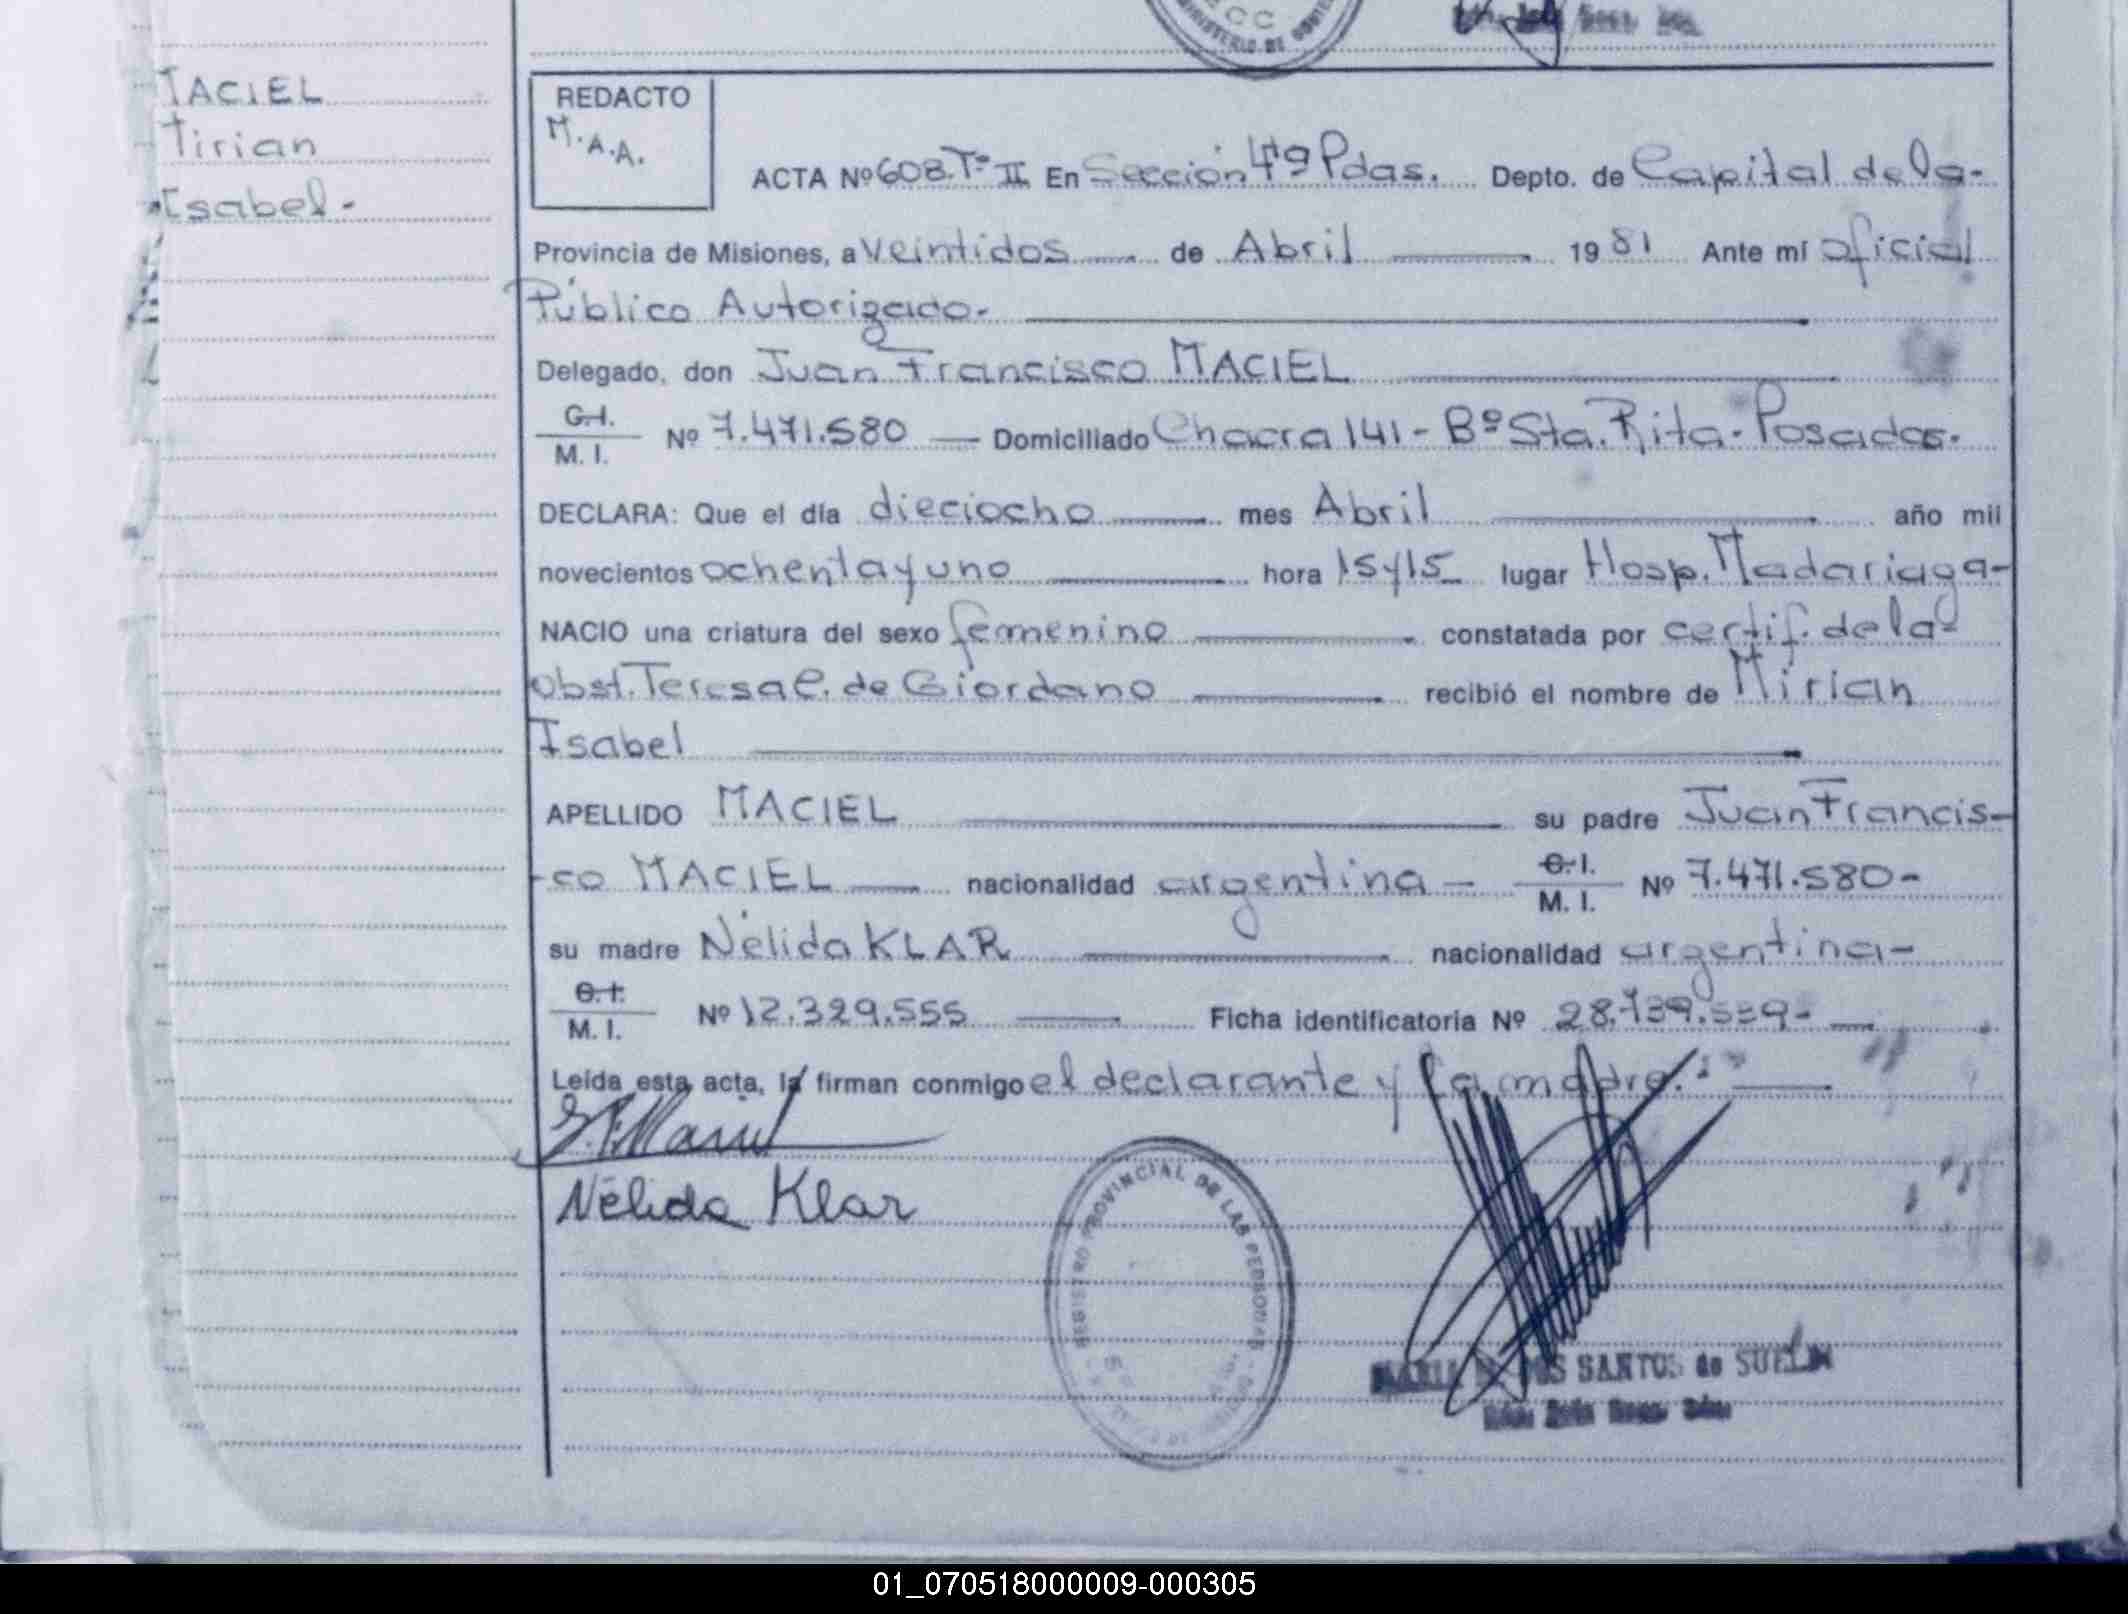 MACIEL
Mirian
Isabel.-
REDACTO
M.A.A.
ACTA Nº 608. Tº II En Sección 4ª Pdas. Depto. de Capital de la-
Provincia de Misiones, a veintidos de Abril 1981 Ante mí oficial
Público Autorizado.-
Delegado, don Juan Francisco MACIEL
C.I.
M. I. Nº 7.471.580 Domiciliado Chacra 141 - Bº Sta. Rita - Posadas.
DECLARA: Que el día dieciocho mes Abril año mil
novecientos ochenta y uno hora 15 y 15 lugar Hosp. Madariaga-
NACIO una criatura del sexo femenino constatada por certif. de la
obst. Teresa C. de Giordano recibió el nombre de Mirian
Isabel
APELLIDO MACIEL su padre Juan Francis-
-co MACIEL nacionalidad argentina - C.I.
M. I. Nº 7.471.580-
su madre Nélida KLAR nacionalidad argentina-
C.I.
M. I. Nº 12.329.555 Ficha identificatoria Nº
Leída esta acta, la firman conmigo el declarante y la madre.
Nélida Klar
REGISTRO PROVINCIAL DE LAS PERSONAS
SANTOS de
01_070518000009-000305